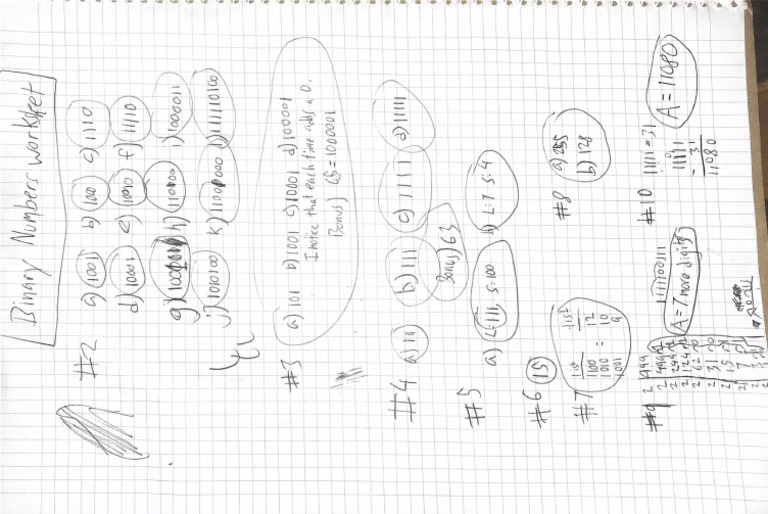 Binary Numbers worksheet
#2 a) 1001 b) 1010 c) 1110
d) 10001 e) 11010 f) 11110
g) h) 110000 i) 1000011
j) 1010100 k) 11001000 l) 1111110100
#3 a) 101 b) 1001 c) 10001 d) 100001
I notice that each time adds a 0.
Bonus) 65 = 1000001
#4 a) 11 b) 111 c) 1111 d) 11111
Bonus) 63
#5 a) L: 111 S: 100 b) L: 7 S: 4
#6 15
#7 list list
1100 12
1010 = 10
1001 9
#8 a) 255
b) 128
#9 2 499
2 249
2 124
2 62
2 31
2 15
2 7
111110011
A = 7 more digits
#10 11111 = 31
11111
- 31
11080
A = 11080